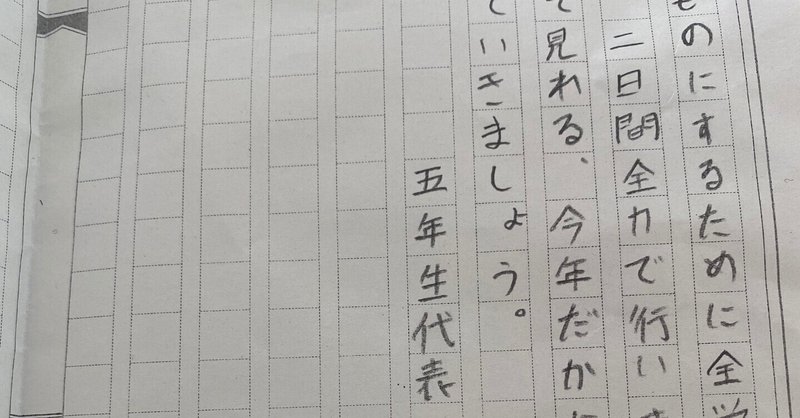 ものにするために全
二日間全力で行い
て見れる、今年だか
ていきましょう。
五年生代表